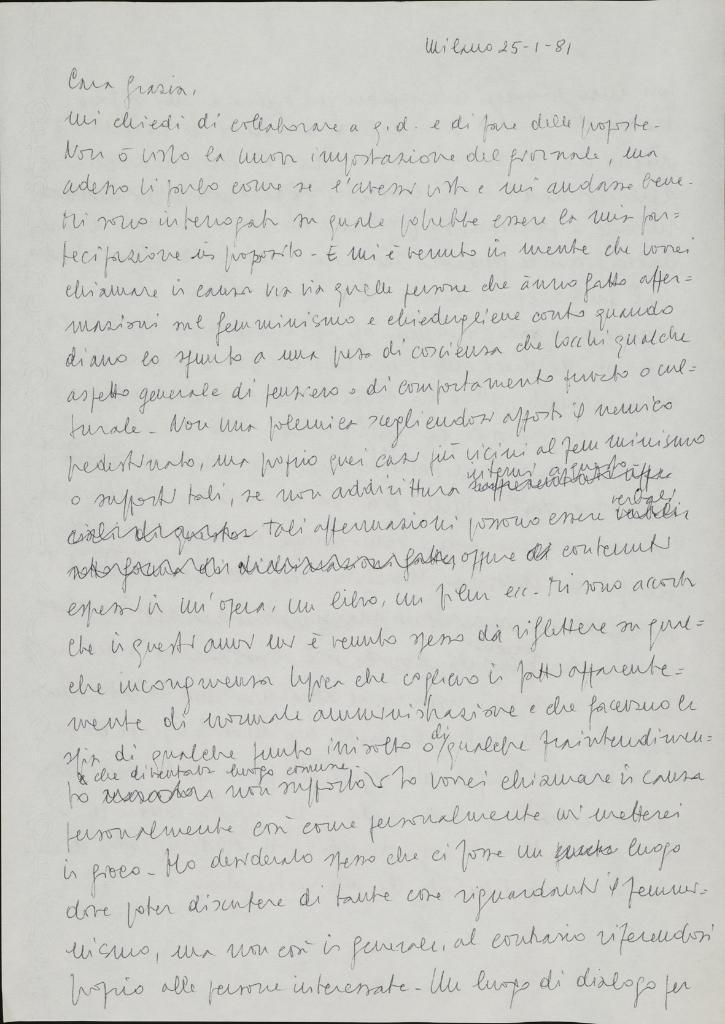 Milano 25-1-81
Cara Grazia,
mi chiedi di collaborare a g.d. e di fare delle proposte.
Non ò visto la nuova impostazione del giornale, ma
adesso ti parlo come se l'avessi vista e mi andasse bene.
Mi sono interrogata su quale potrebbe essere la mia par=
tecipazione in proposito - E mi è venuto in mente che vorrei
chiamare in causa via via quelle persone che ànno fatto affer=
mazioni sul femminismo e chiedergliene conto quando
diano lo spunto a una presa di coscienza che tocchi qualche
aspetto generale di pensiero o di comportamento privato o cul=
turale - Non una polemica scegliendosi apposta il nemico
predestinato, ma proprio quei casi più vicini al femminismo
o supposti tali, se non addirittura interni a questo
tali affermazioni possono essere verbali
oppure contenuti
espressi in un'opera, un libro, un film ecc - Mi sono accorta
che in questi anni mi è venuto spesso da riflettere su qual=
che incongruenza tipica che coglievo in fatti apparente=
mente di normale amministrazione e che facevano la
spia di qualche punto irrisolto o di qualche fraintendimen=
to che diventato luogo comune non sopporto - Io vorrei chiamare in causa
personalmente così come personalmente mi metterei
in gioco - Ho desiderato spesso che ci fosse un luogo
dove poter discutere di tante cose riguardanti il femmi=
nismo, ma non così in generale, al contrario riferendosi
proprio alle persone interessate - Un luogo di dialogo per